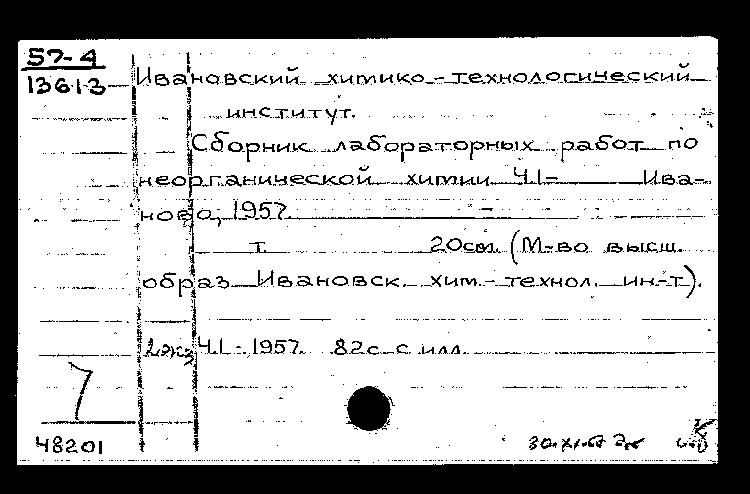 57-4
13613
Ивановский химико-технологический
институт.
Сборник лабораторных работ по
неорганической химии Ч.1- Ива-
ново, 1957.
т 20см. (М-во высш.
образ Ивановск. хим.-технол. ин-т).
2экз Ч.1-, 1957. 82с. с илл.
7
48201